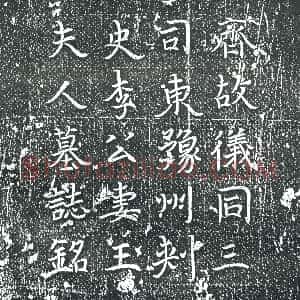 齊故儀同三
司東豫州刾
史李公妻王
夫人墓誌銘